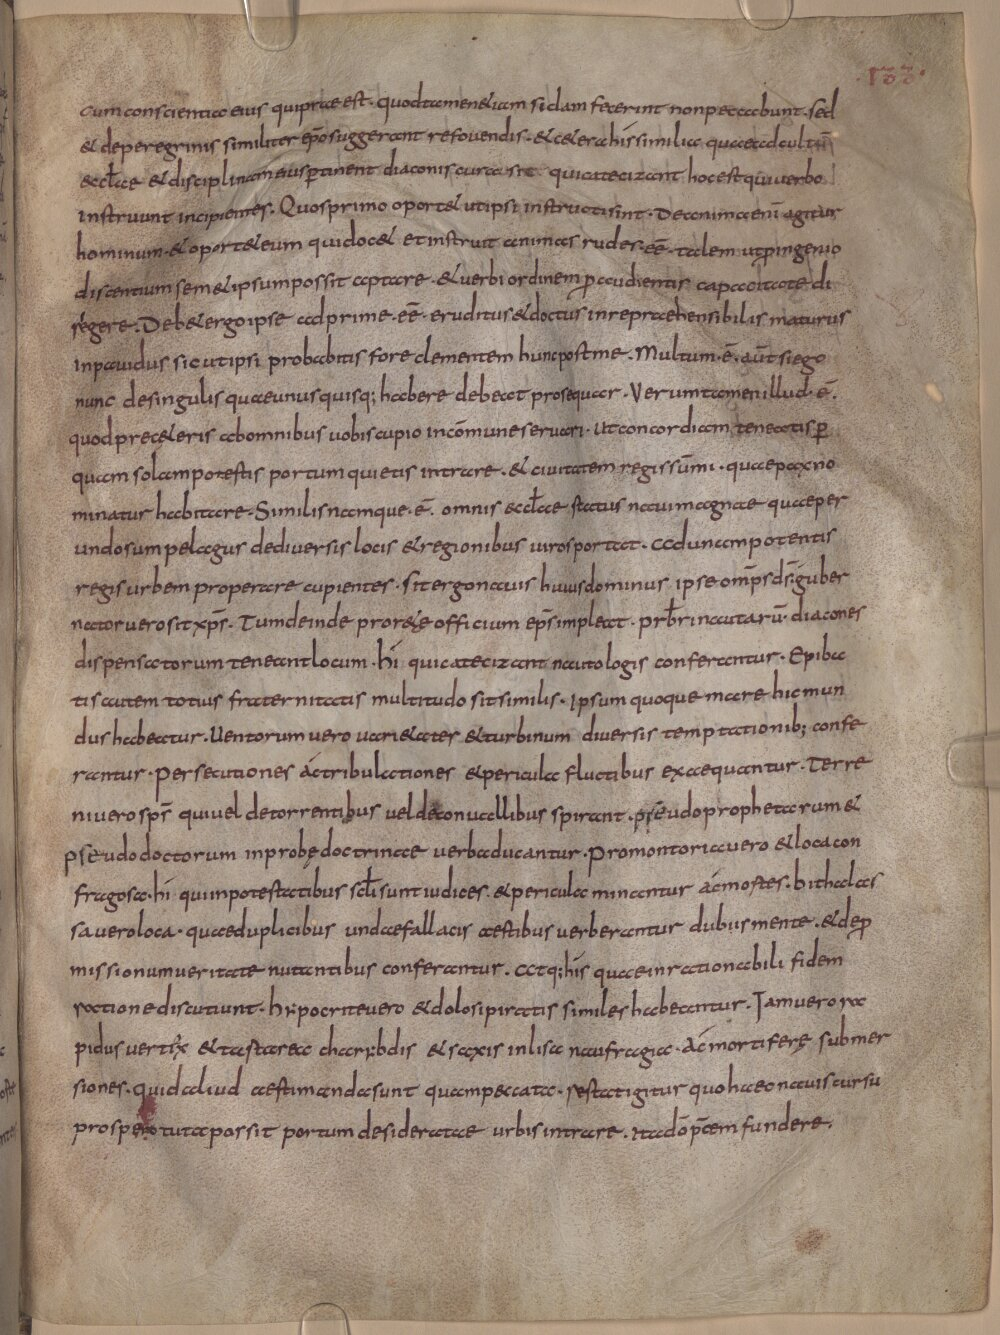 ·133·
cum conscientia eius qui prae est· quod tamen & iam si clam fecerint non peccabunt· sed
& de peregrinis similiter ep̄o suggerant refouendis· & cetera his similia quae ad cultū
eccl̄ae & disciplinam eius pertinent diaconis cura sit· qui catecizant hoc est qui uerbo
instruunt incipientes. Quos primo oport& ut ipsi instructi sint· De anima enī agitur
hominum· & oport& eum qui doc& et instruit animas rudes· eē· talem ut p ingenio
discentium sem&ipsum possit aptare· & uerbi ordinem p audientis capacitate di
rigere. Deb& ergo ipse adprime· eē· eruditus & doctus inrepraehensibilis maturus
inpauidus sic ut ipsi probabitis fore clementem hunc post me. Multum· ē· aūt si ego
nunc de singulis quae unusquisq; habere debeat prosequar· Verumtamen illud· ē.
quod prec&eris ab omnibus uobis cupio in cōmune seruari· ut concordiam teneatis p
quam solam potestis portum quietis intrare· & ciuitatem regis sūmi· quae pax no
minatur habitare· Similis namque· ē. omnis eccl̄ae status naui magnae quae per
undosum pelagus de diuersis locis & regionibus uiros portat· ad unam potentis
regis urbem properare cupientes· sit ergo nauis huius dominus ipse om̄ps d̄s· guber
nator uero sit xp̄s· Tum deinde prorętę officium ep̄s impleat· prb̄ri nautarū· diacones
dispensatorum teneant locum· hi qui catecizant nautologis conferantur· Epiba
tis autem totius fraternitatis multitudo sit similis· ipsum quoque mare hic mun
dus habeatur. Uentorum uero uari&ates & turbinum diuersis temptationib; confe
rantur· Persecutiones ac tribulationes & pericula fluctibus exaequantur· Terre
ni uero sp̄s qui uel de torrentibus uel de conuallibus spirant· pseudo prophetarum &
pseudo doctorum inprobę doctrinae uerba ducantur· Promontoria uero & loca con
fragosa· hi qui in potestatibus sc̄li sunt iudices· & pericula minantur ac mortes· bithalas
sa uero loca· quae duplicibus undae fallacis aestibus uerberantur dubiis mente· & de p
missionum ueritate nutantibus conferantur· Atq; his quae inrationabili fidem
ratione discutiunt· hypocrite uero & dolosi piratis similes habeantur· Iam uero ra
pidus uertix & tastarea charybdis & saxis inlisa naufragia· ac mortiferę submer
siones· quid aliud aestimanda sunt quam peccata· restat igitur quo haec nauis cursu
prospero tuta possit portum desideratae urbis intrare. ita ad dō p̄cem fundere.